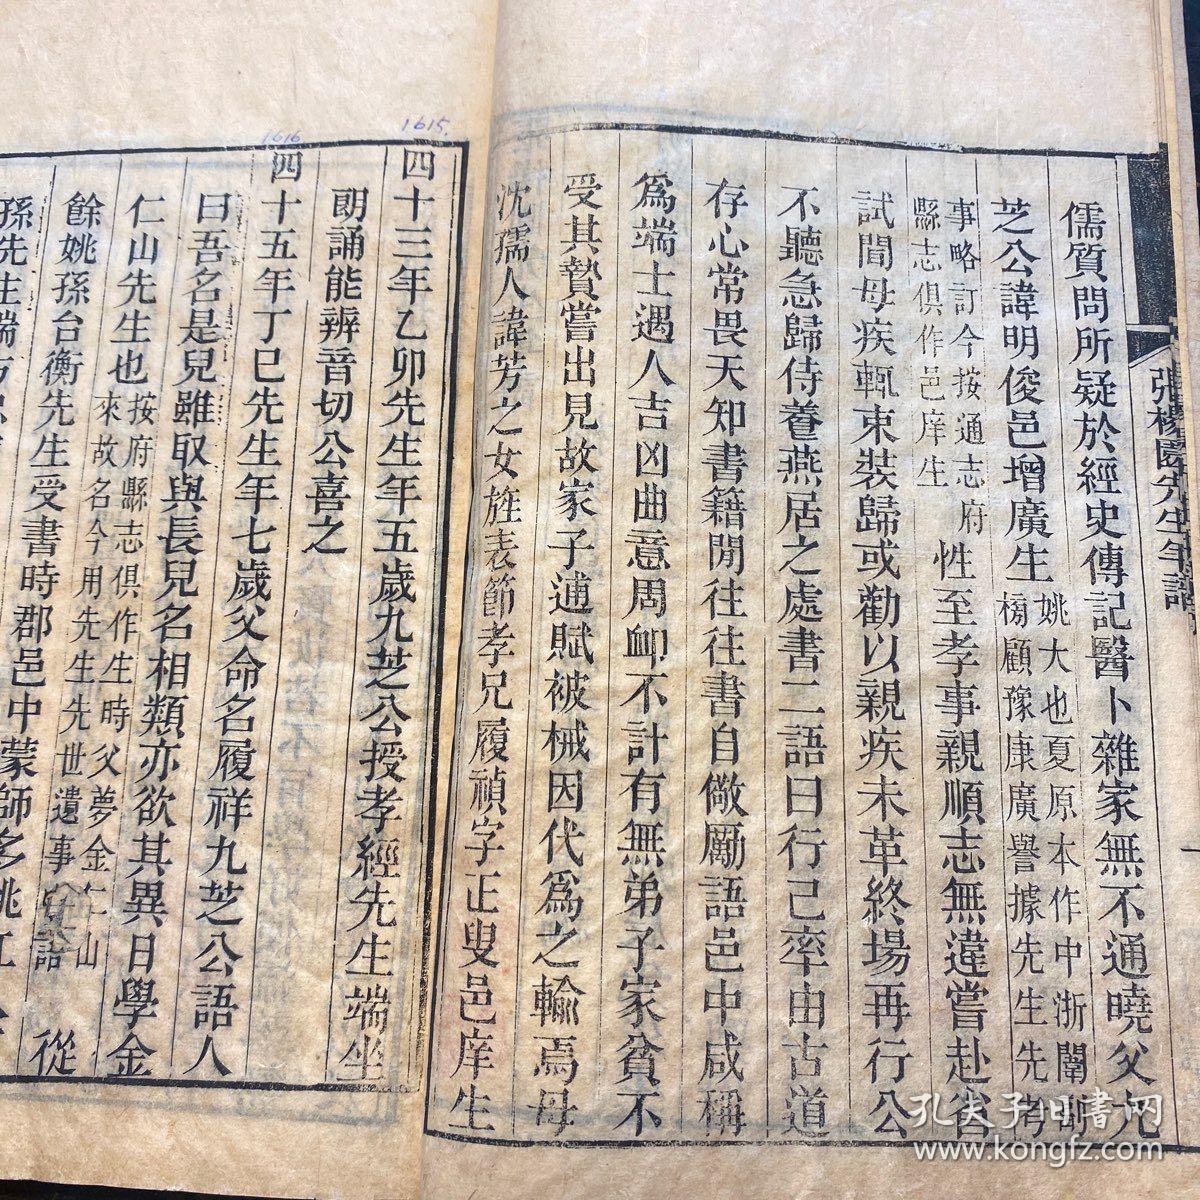 張楊園先生年譜
儒質問所疑於經史傳記醫卜雜家無不通曉父九
芝公諱明俊邑增廣生
姚大也夏原本作中浙闈副
榜顧豫康廣譽據先生先考
事略訂今按通志府
縣志俱作邑庠生
性至孝事親順志無違嘗赴省
試間母疾輒束裝歸或勸以親疾未革終場再行公
不聽急歸侍養燕居之處書二語曰行己率由古道
存心常畏天知書籍閒往往書自儆勵語邑中咸稱
為端士遇人吉凶曲意周卹不計有無弟子家貧不
受其贄嘗出見故家子逋賦被械因代為之輸焉母
沈孺人諱芳之女旌表節孝兄履禎字正叟邑庠生
1615
四十三年乙卯先生年五歲九芝公授孝經先生端坐
朗誦能辨音切公喜之
1616
四十五年丁巳先生年七歲父命名履祥九芝公語人
曰吾名是兒雖取與長兒名相類亦欲其異日學金
仁山先生也
按府縣志俱作生時父夢金仁山
來故名今用先生先世遺事
語
從
餘姚孫台衡先生受書時郡邑中蒙師多姚江
孫先生端方
孔夫子旧書网
www.kongfz.com